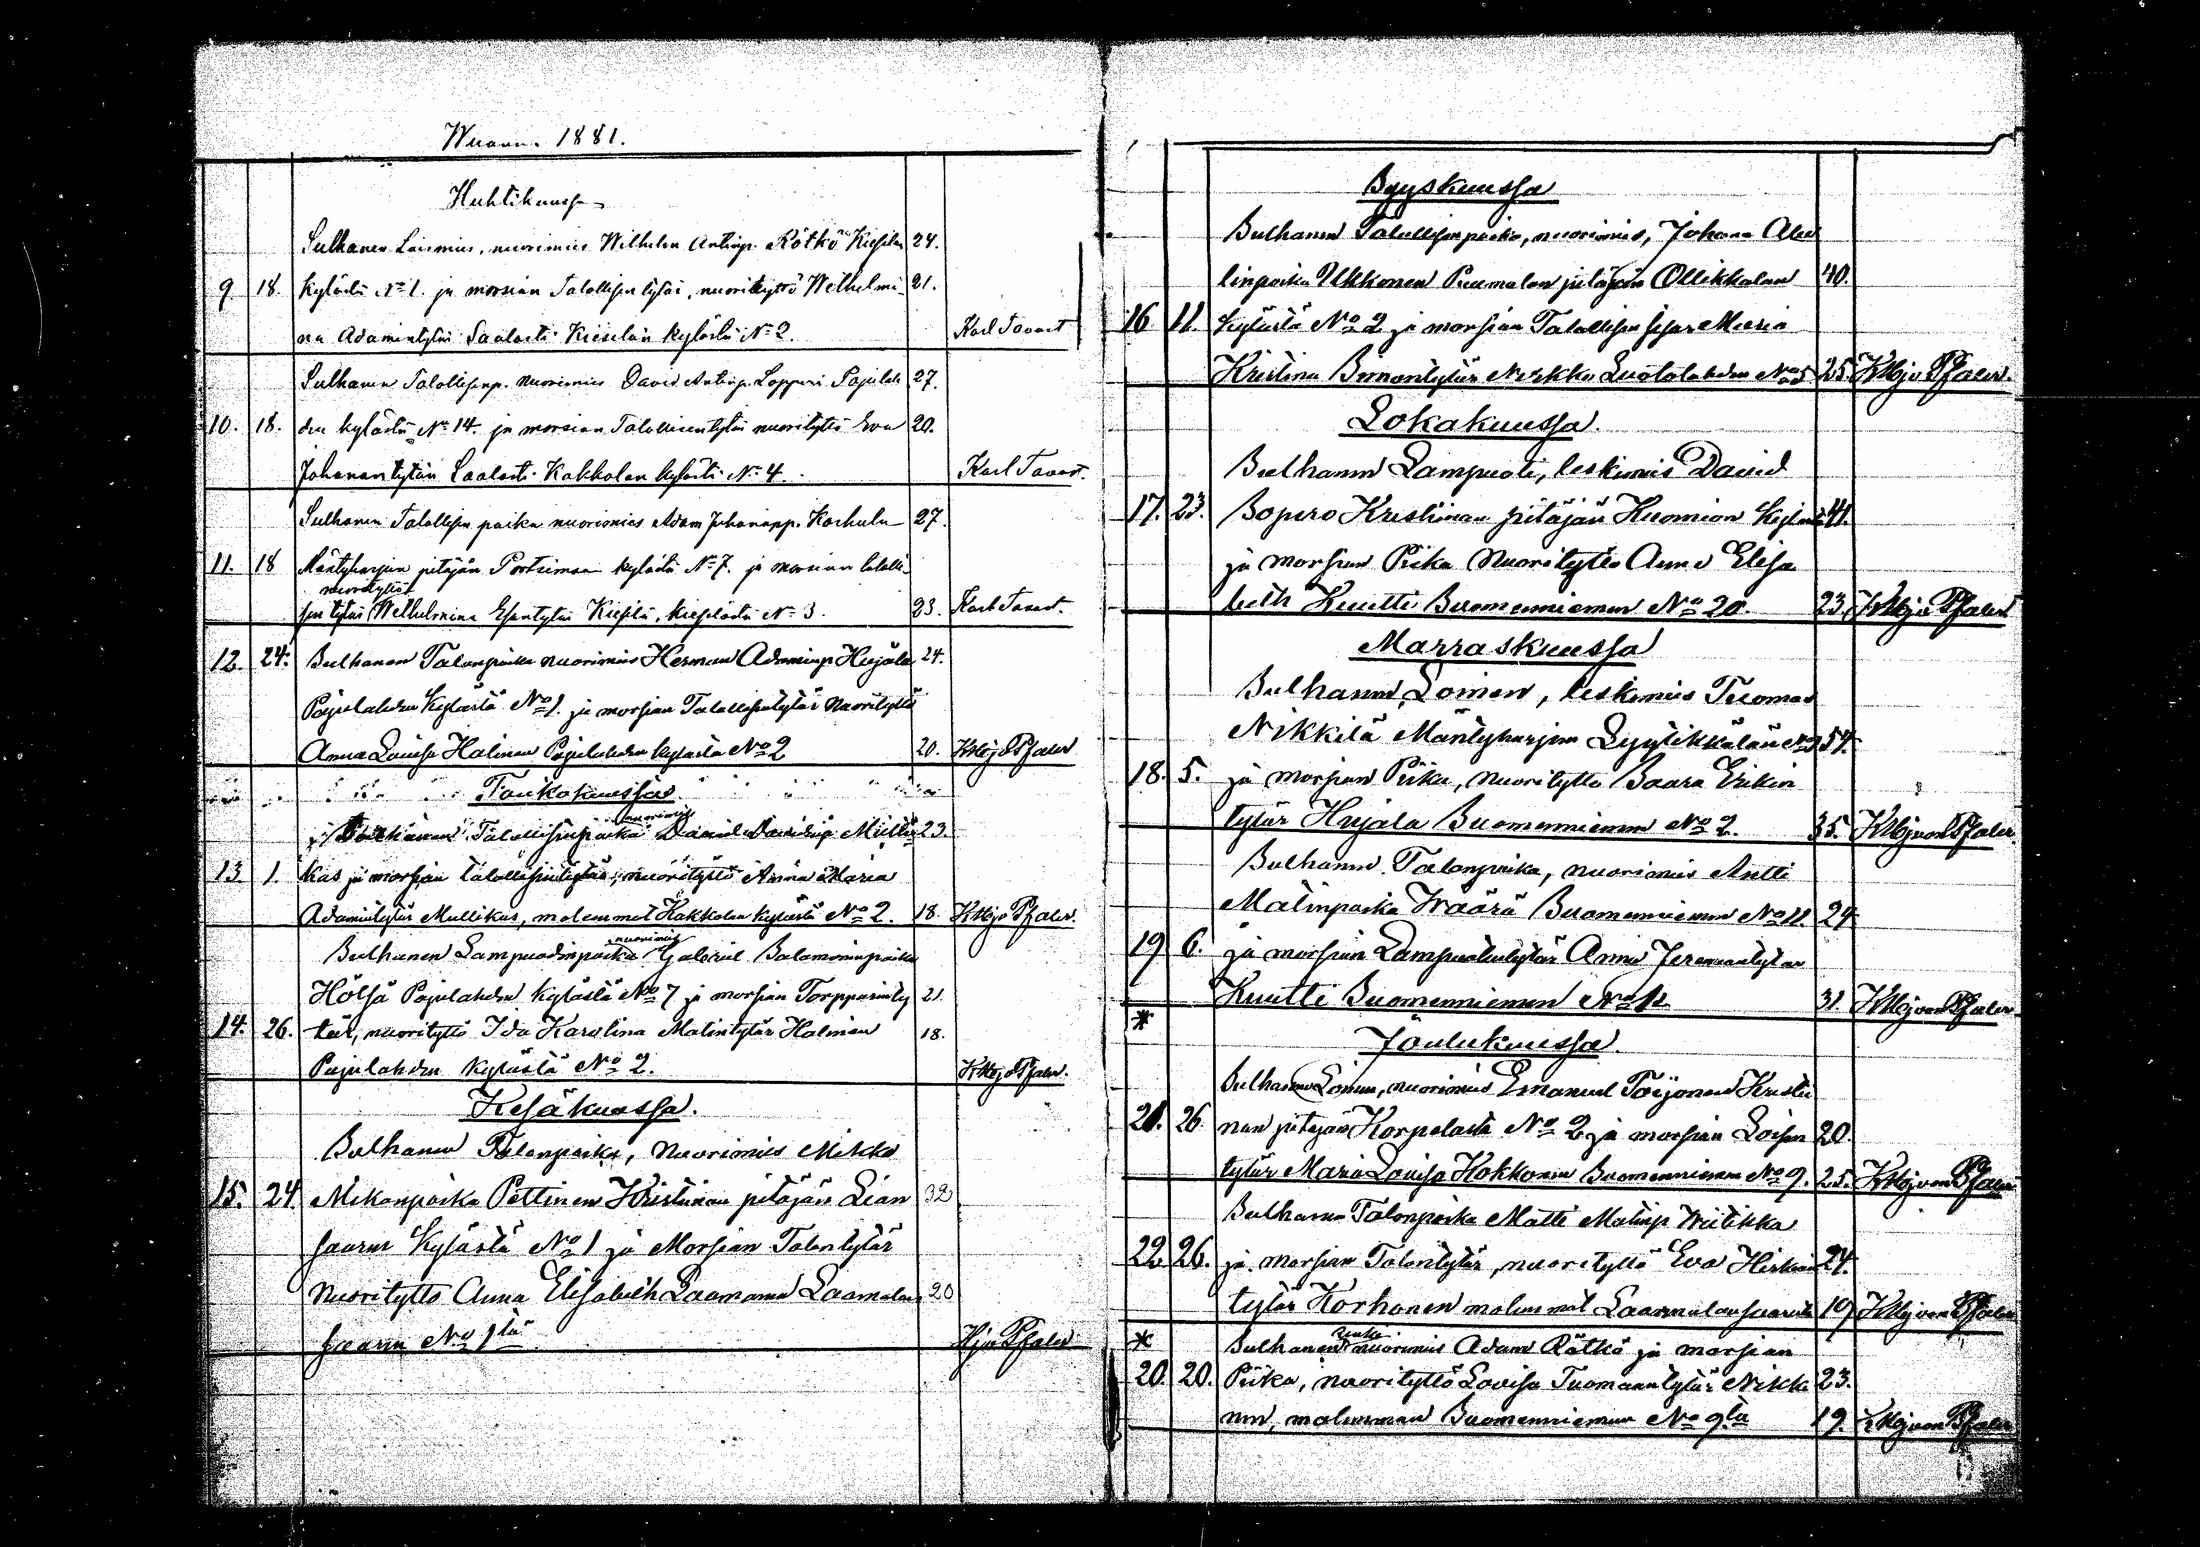 Wuonna 1881.
Huhtikuussa
Sulhanen Loismies, nuorimies Wilhelm Antinp. Rötkö Kiesilän 24.
9. 18. kylästä No 1. ja morsian Talollisen tytär, nuorityttö Wilhelmi- 21.
na Adamintytär Saalasti Kiesilän kylästä No 2. Karl Tavast
Sulhanen Talollisenp. nuorimies David Antinp. Lopperi Pajulah 27.
10. 18. den kylästä No 14. ja morsian Talollisentytär nuorityttö Eva 20.
Johanantytär Saalasti Kakkolan kylästä No 4. Karl Tavast.
Sulhanen Talollisen poika nuorimies Adam Juhananp. Karhula 27.
11. 18 Mäntyharjun pitäjän Partsimaa kylästä No 7. ja morsian talolli-
nuorityttö
sen tytär Wilhelmina Esantytär Kiesilä, Kiesilästä No 3. 23. Karl Tavast.
12. 24. Sulhanen Talonpoika nuorimies Herman Adaminp Hujala 24.
Pajulahden Kylästä No 1. ja morsian Talollisentytär Nuorityttö
Anna Lovisa Halinen Pajulahden kylästä No 2 20. K Hj v Pfaler
Toukokuussa
nuorimies
Sulhanen Talollisenpoika Daniel Danielinp Mulli 23.
13. 1. kas ja morsian talollisentytär, nuorityttö Anna Maria
Adamintytär Mullikas, molemmat Kakkolan kylästä No 2. 18. K Hj v Pfaler.
nuorimies
Sulhanen Lampuodinpoika Gabriel Salamoninpoika
Hölsä Pajulahden kylästä No 7 ja morsian Torpparinty 21.
14. 26. tär, nuorityttö Ida Karolina Matintytär Halinen 18.
Pajulahden kylästä No 2. K Hj v Pfaler.
Kesäkuussa.
Sulhanen Talonpoika, Nuorimies Mikko
15. 24. Mikonpoika Pettinen Kristiinan pitäjän Lian 32
saaren Kylästä No 1 ja Morsian Talontytär
Nuorityttö Anna Elisabeth Laamanen Laamalan 20
saaren No 1tä Hj v Pfaler
Syyskuussa
Sulhanen Talollisenpoika, nuorimies, Johana Abe
linpoika Ukkonen Puumalan pitäjän Ollikkalan 40.
16. 11. kylästä No 2 ja morsian Talollisen sisar Maria
Kristina Simontytär Kirkko Luotolahden No 5 25. K Hj v Pfaler.
Lokakuussa.
Sulhanen Lampuoti, leskimies David
17. 23. Sopero Kristiinan pitäjän Kuomion kylästä 41.
ja morsian Piika Nuorityttö Anna Elisa
beth Kuutti Suomenniemen No 20. 23. K Hj v Pfaler
Marraskuussa
Sulhanen, Loinen, leskimies Tuomas
Nikkilä Mäntyharjun Lyytikkälän No 3 54.
18. 5. ja morsian Piika, nuorityttö Saara Erikin
tytär Hujala Suomenniemen No 2. 35. K Hj von Pfaler
Sulhanen Talonpoika, nuorimies Antti
Matinpoika Wäärä Suomenniemen No 11. 24.
19 6. ja morsian Lampuotintytär Anna Jeremiantytär
Kuutti Suomenniemen No 12 31. K Hj von Pfaler
*
Joulukuussa.
Sulhanen Loinen, nuorimies Emanuel Toijonen Kristii
21. 26. nan pitäjän Korpelasta No 2 ja morsian Loisen 20.
tytär Maria Lovisa Kokkonen Suomenniemen No 9. 25. K Hj von Pfaler
Sulhanen Talonpoika Matti Matinp Wiitikka
22. 26. ja morsian Talontytär, nuorityttö Eva Heikin 24.
tytär Korhonen molemmat Laamalansaaresta 19 K Hj von Pfaler
renki
* Sulhanen nuorimies Adam Rötkö ja morsian
20. 20. Piika, nuorityttö Lovisa Tuomaantytär Nikki 23.
nen, molemmat Suomenniemen No 9tä 19. K Hj von Pfaler